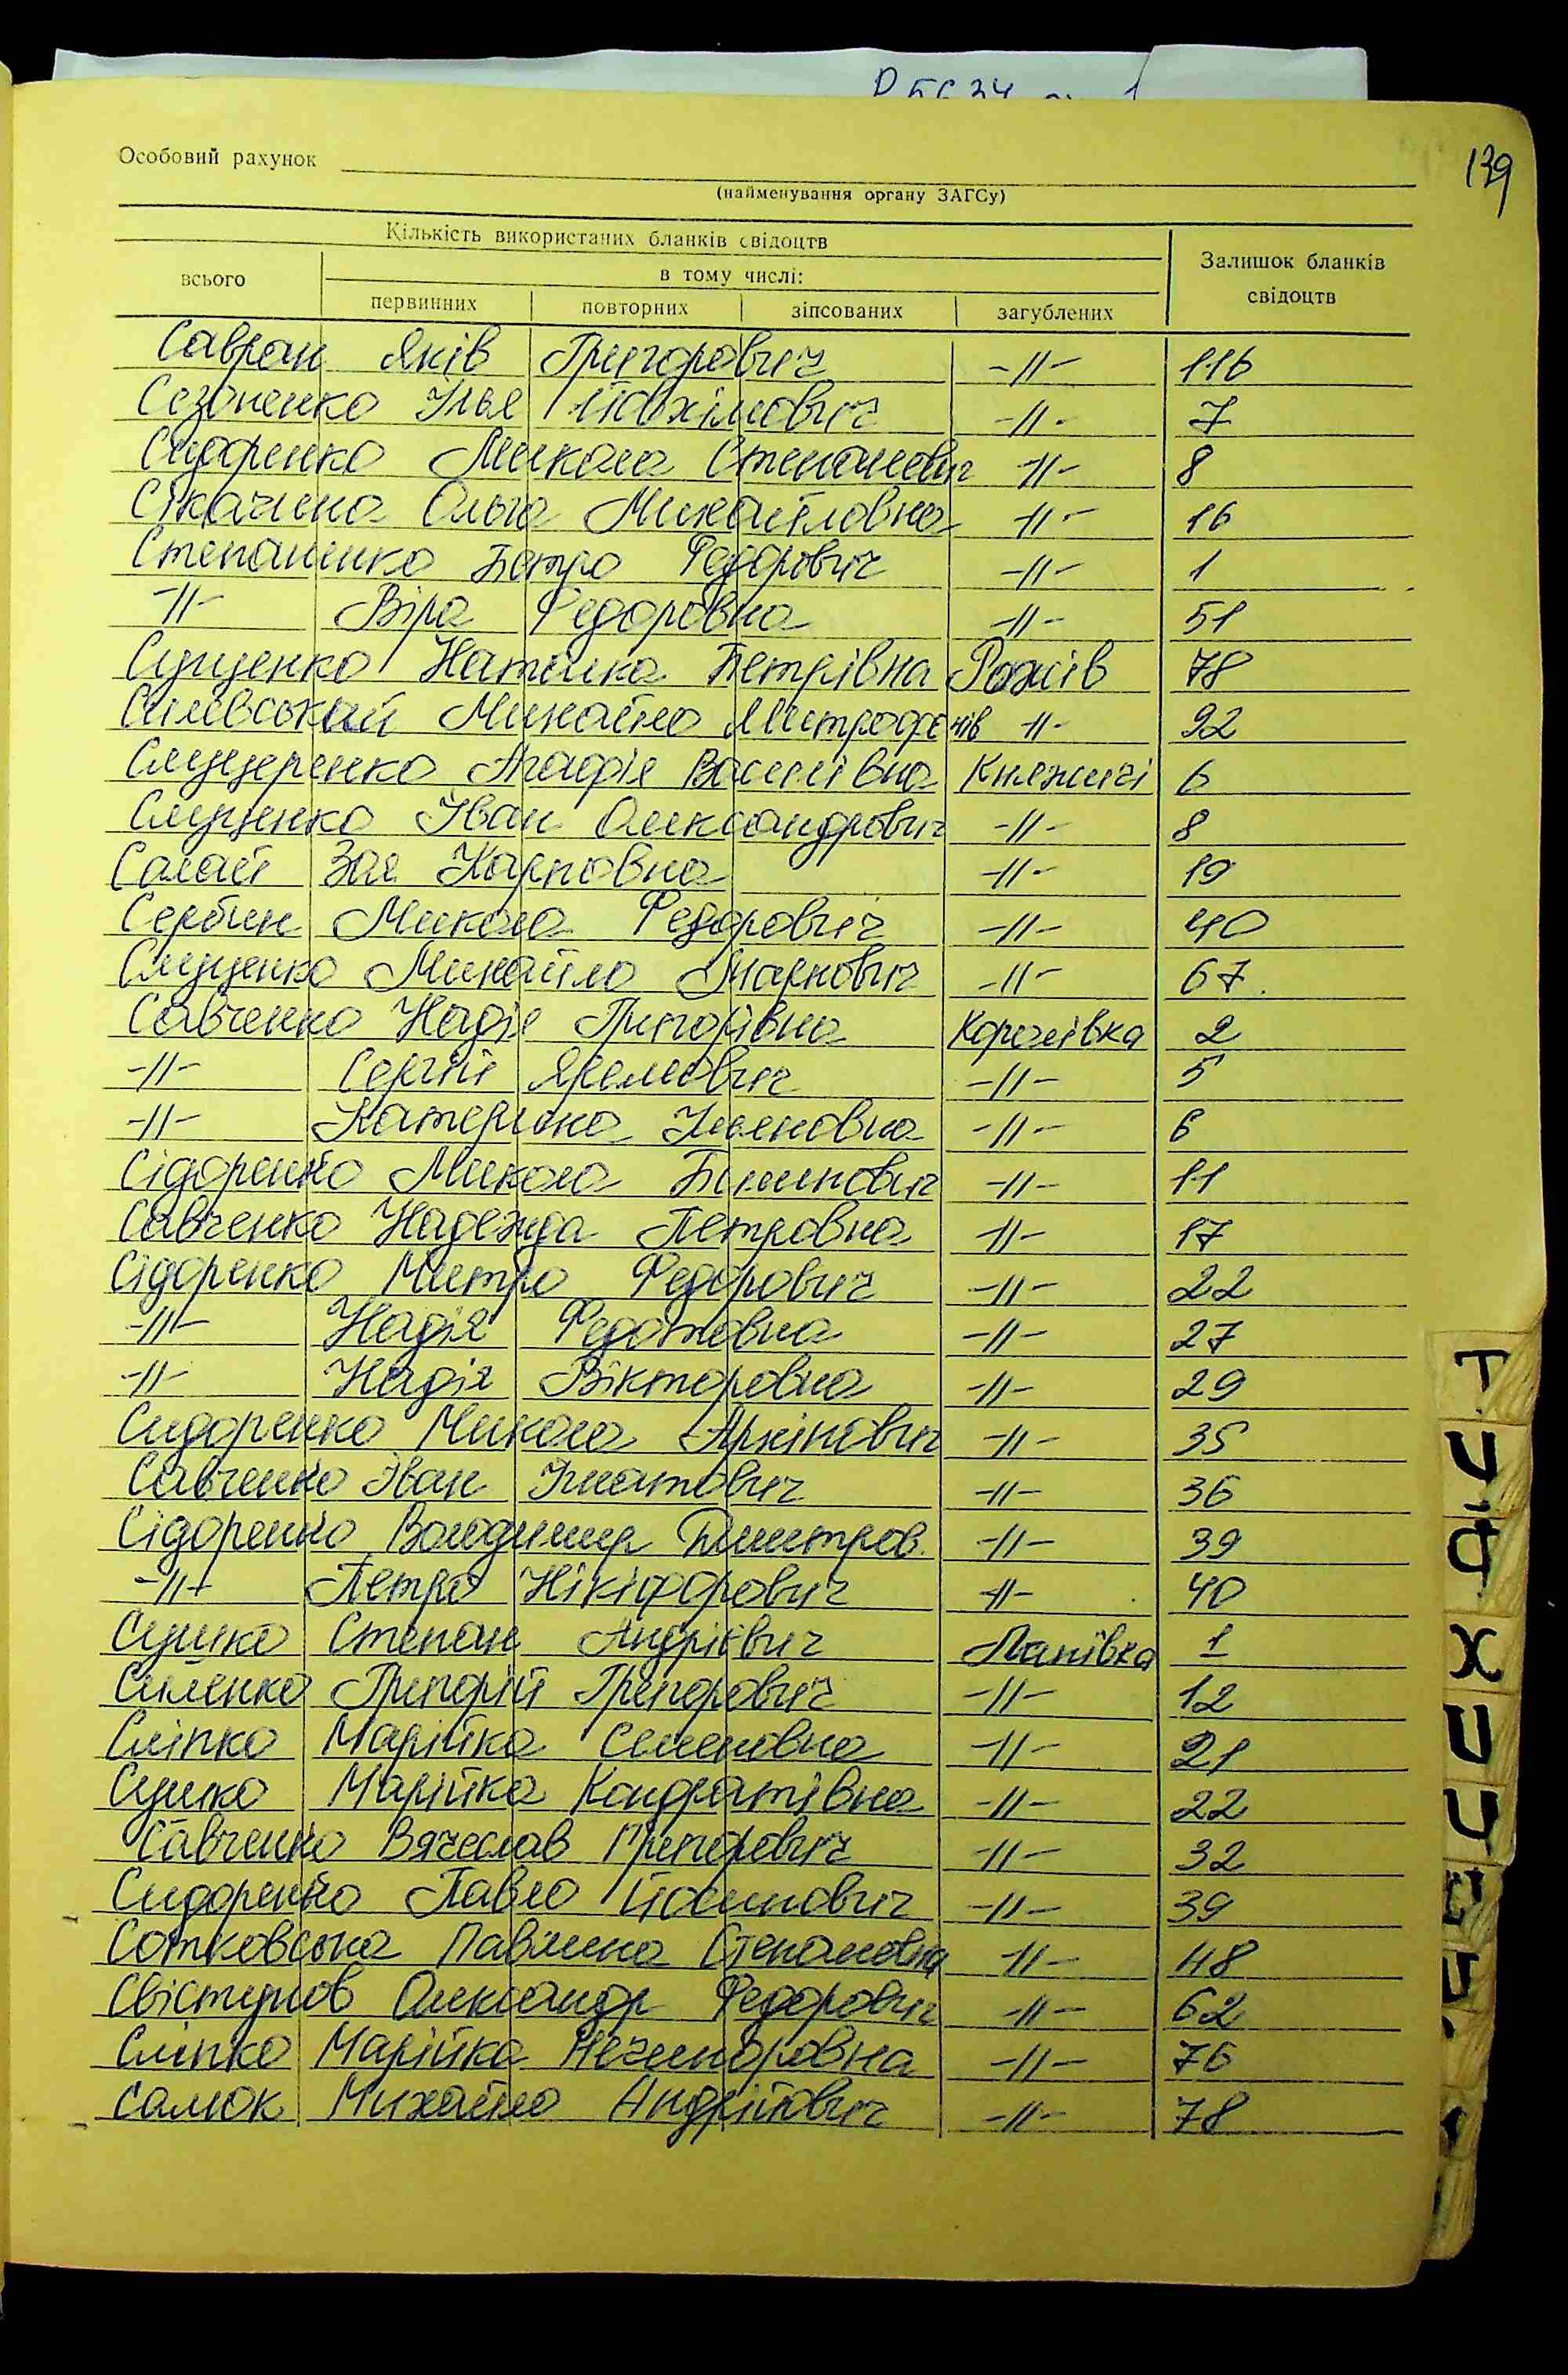 Особовий рахунок
139
(найменування органу ЗАГСу)
Кількість використаних бланків свідоцтв
всього
в тому числі:
Залишок бланків свідоцтв
первинних повторних зіпсованих загублених
Савран Яків Григорович -//- 116
Сезоненко Ілья Йовхімович -//- 7
Сидоренко Микола Степанович -//- 8
Сікачина Ольга Михайловна -//- 16
Степаненко Петро Федорович -//- 1
-//- Віра Федоровна -//- 51
Сущенко Наталка Петрівна Рожів 78
Силевський Михайло Митрофанів -//- 92
Слущеренко Агафія Василівна Княжичі 6
Слущенко Іван Олександрович -//- 8
Салай Зоя Карповна -//- 19
Сербин Микола Федорович -//- 40
Слуценко Михайло Маркович -//- 67
Савченко Надія Григорівна Королівка 2
-//- Сергій Яремович -//- 5
-//- Катерина Ульяновна -//- 6
Сідоренко Микола Пилипович -//- 11
Савченко Надежда Петровна -//- 17
Сідоренко Митро Федорович -//- 22
-//- Надія Федотовна -//- 27
-//- Надія Вікторовна -//- 29
Сидоренко Микола Архіпович -//- 35
Савченко Іван Ігнатович -//- 36
Сідоренко Володимир Дмитров. -//- 39
-//- Петро Нікіфорович -//- 40
Сушко Степан Андрієвич Липівка 1
Силенко Григорій Григорович -//- 12
Сліпко Марійка Семеновна -//- 21
Сушко Марійка Кондратівна -//- 22
Савченко Вячеслав Григорович -//- 32
Сидоренко Павло Йосипович -//- 39
Сотковська Павлина Степановна -//- 48
Свістунов Олександр Федорович -//- 62
Сліпко Марійка Нечипоровна -//- 76
Салюк Михайло Андрійович -//- 78
Т
У
Ф
Х
Ц